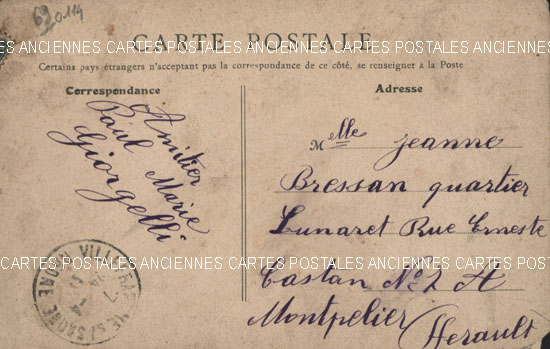 69014
CARTE POSTALE
CARTES POSTALES ANCIENNES CARTES POSTALES ANCIENNES CARTES POSTALES
Certains pays étrangers n'acceptant pas la correspondance de ce côté, se renseigner à la Poste
Correspondance
Amitier
Paul Marie
Giorgelli
Adresse
Melle Jeanne
Bressan quartier
Lunaret Rue Erneste
Castan No 2 A
Montpelier (Herault)
CARTES POSTALES ANCIENNES CARTES POSTALES ANCIENNES CARTES POSTALES
VILLEFRANCHE S/ SAONE RHONE